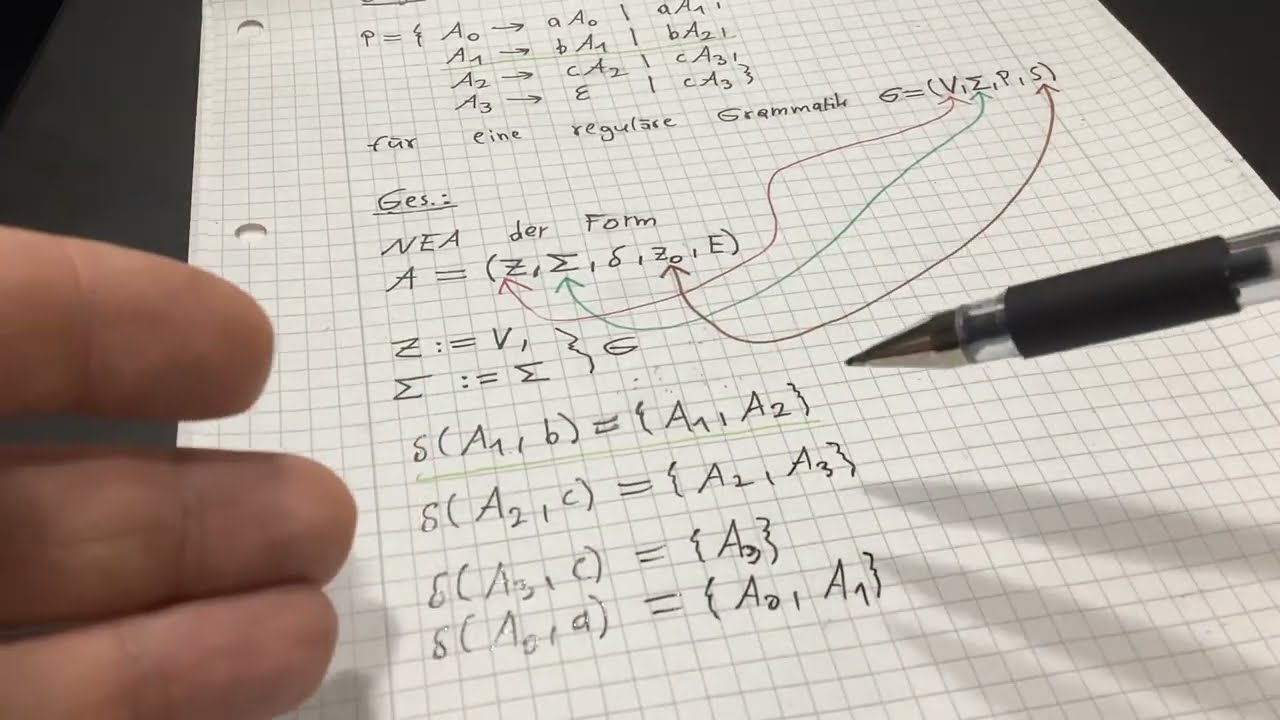 P = { A₀ → aA₀ | aA₁,
A₁ → bA₁ | bA₂,
A₂ → cA₂ | cA₃,
A₃ → ε | cA₃ }
für eine reguläre Grammatik G=(V,Σ,P,S)
Ges.:
NEA der Form
A = (Z,Σ,δ,z₀,E)
Z := V, } G
Σ := Σ
δ(A₁,b) = {A₁,A₂}
δ(A₂,c) = {A₂,A₃}
δ(A₃,c) = {A₃}
δ(A₀,a) = {A₀,A₁}